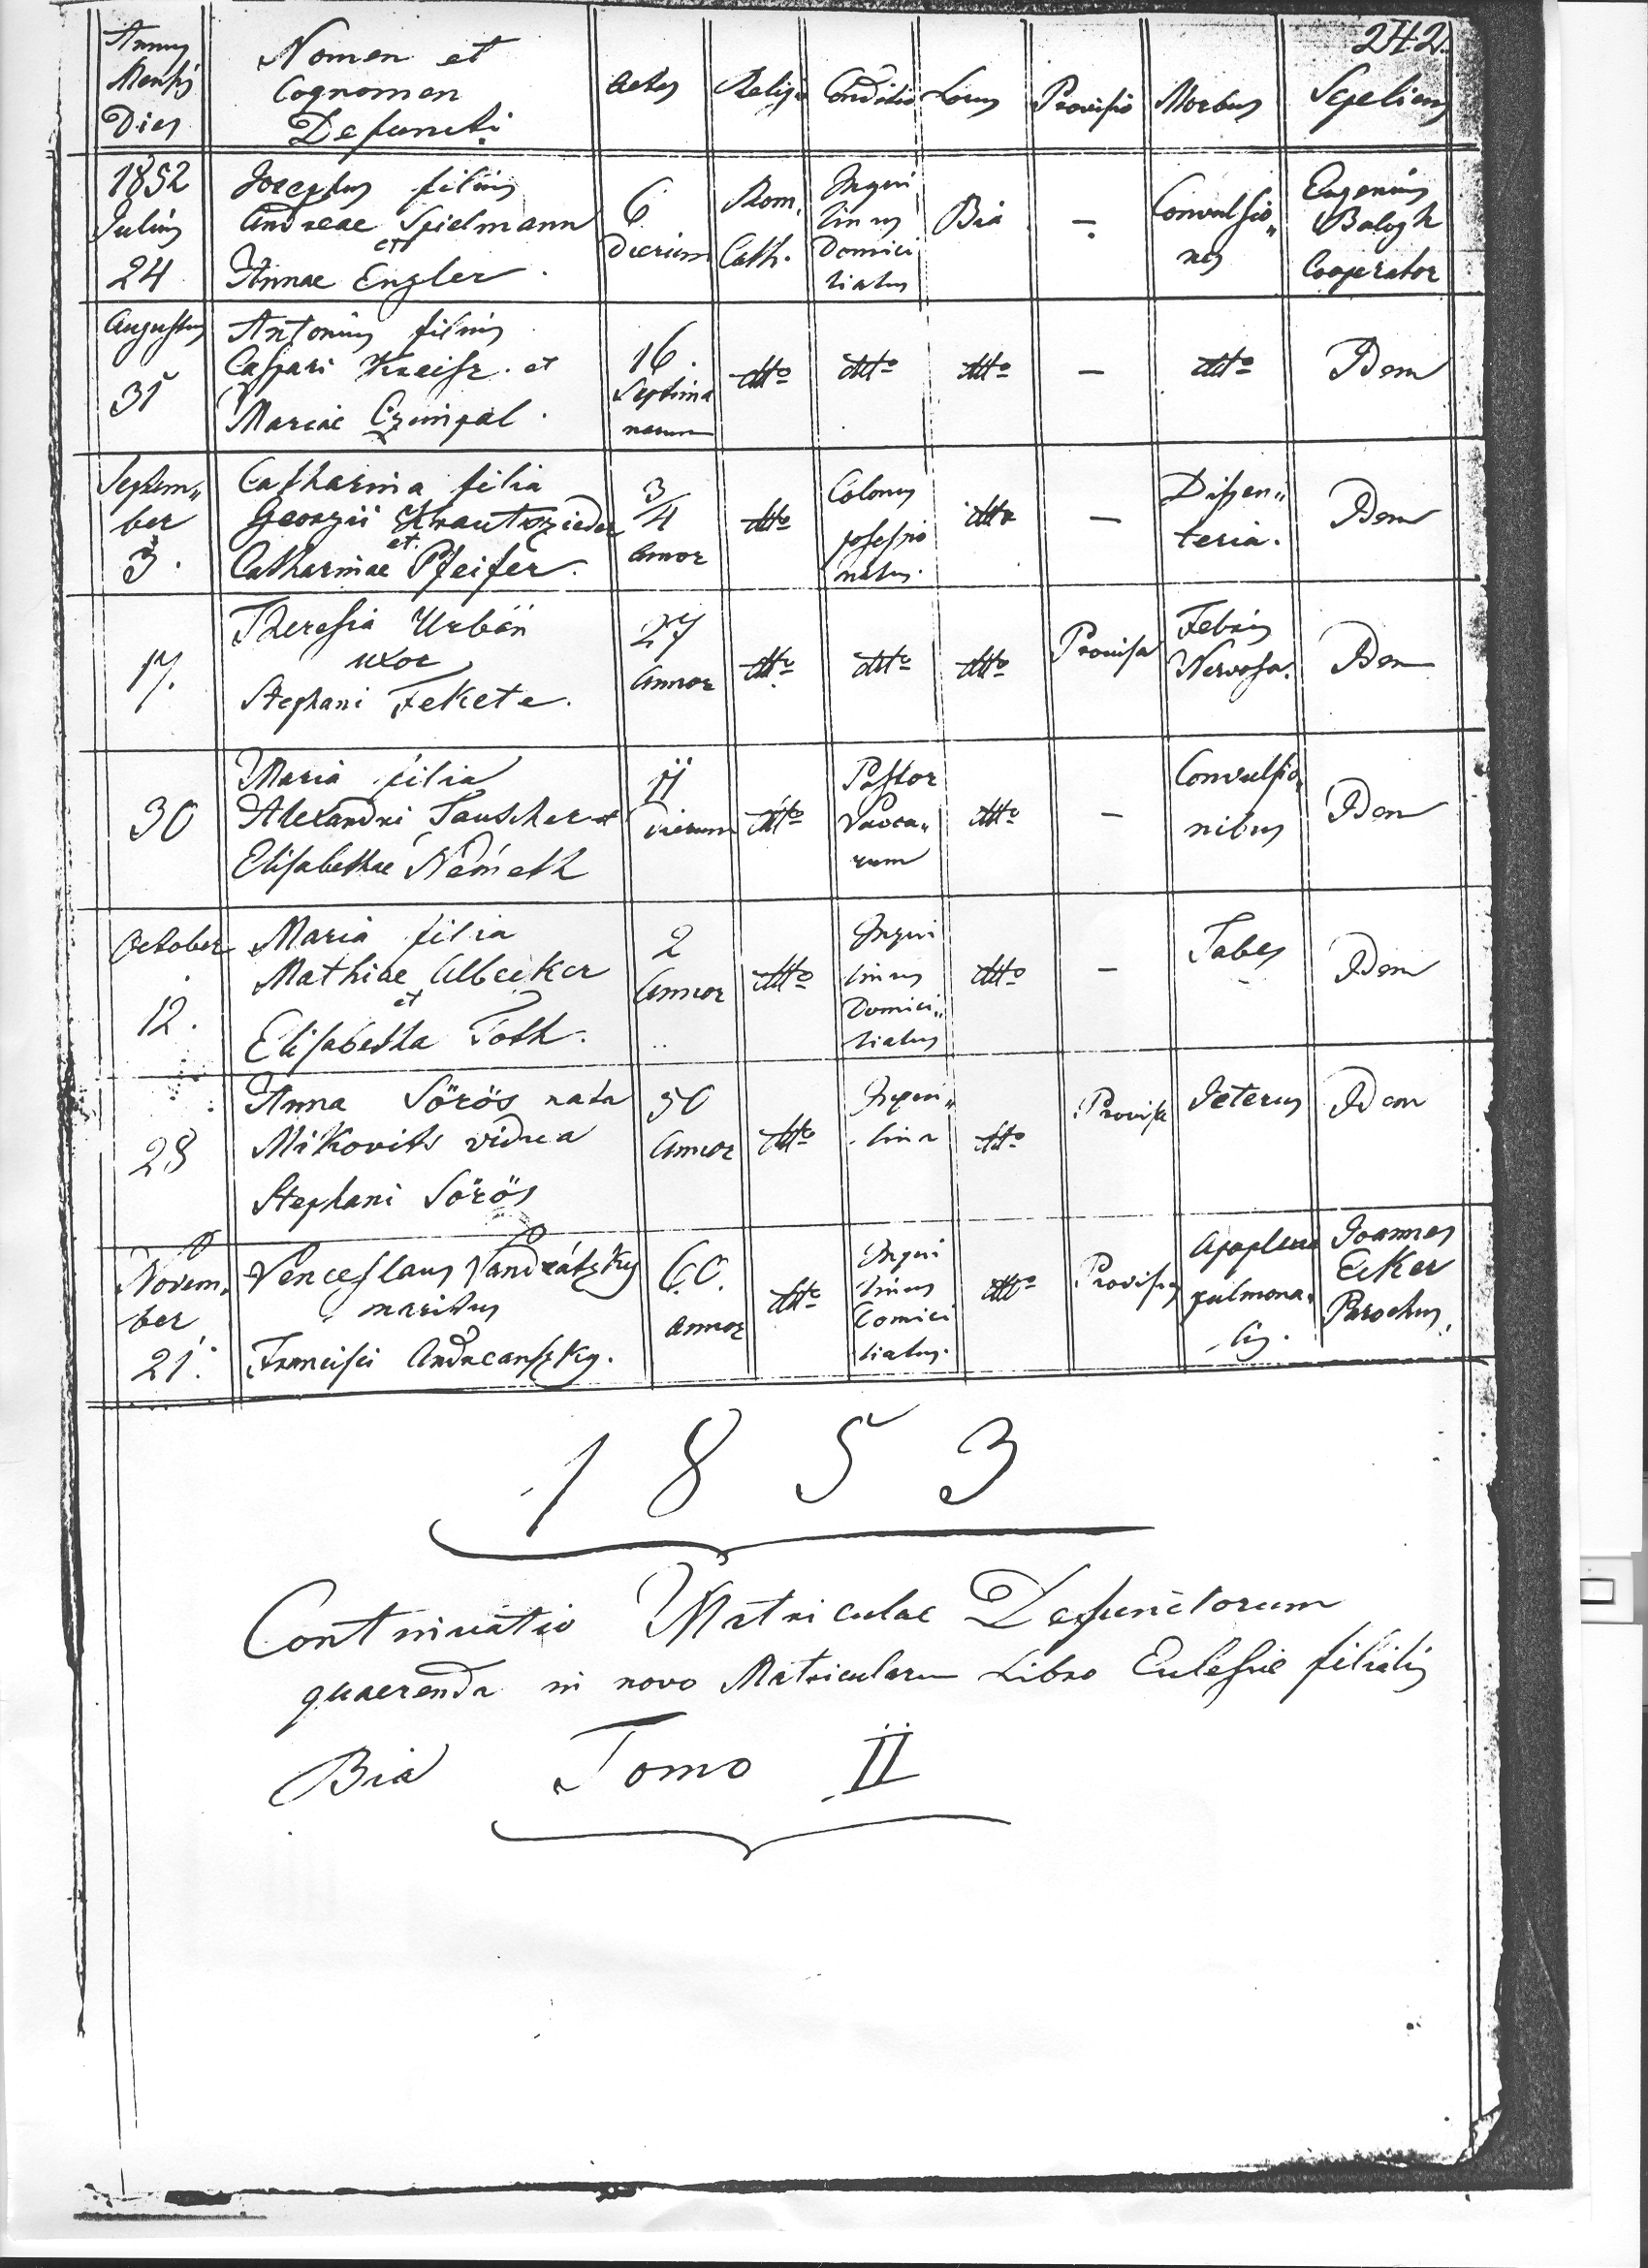 242.
Annus Mensis Dies
Nomen et Cognomen Defuncti
Aetas
Religio
Conditio
Locus
Provisio
Morbus
Sepeliens
1852 Julius 24
Josephus filius
Andreae Spielmann
et
Annae Engler.
6 Dierum
Rom. Cath.
Inqui
linus
Domici
liatus
Bia
—
Convulsio„
nes
Eugenius
Balogh
Cooperator
Augustus 31
Antonius filius
Caspari Kreisz. et
Mariae Czimpal.
16. Septima
narum
dtto
dtto
dtto
—
dtto
Idem
Septem„
ber
3.
Catharina filia
Georgii Krautszieder
et
Catharinae Pfeifer.
3/4
annor
dtto
Colonus
possessio
natus.
dtto
—
Dissen„
teria.
Idem
17.
Theresia Urbán
uxor
Stephani Fekete.
27
Annor
dtto
dtto
dtto
Provisa
Febris
Nervosa.
Idem
30
Maria filia
Alexandri Tauscher et
Elisabethae Németh
11
Dierum
dtto
Pastor
Vacca„
rum
dtto
—
Convulsio„
nibus
Idem
October
12.
Maria filia
Mathiae Albecker
et
Elisabetha Toth.
2
Annor
dtto
Inqui
linus
Domici„
liatus
dtto
—
Tabes
Idem
28
Anna Sörös nata
Mikovits vidua
Stephani Sörös
50
Annor
dtto
Inqui„
lina
dtto
Provisa
Icterus
Idem
Novem„
ber
21.
Venceslaus Vandrátzky
maritus
Francisci Andreanszky.
60.
annor
dtto
Inqui
linus
Comici
liatus.
dtto
Provisus
Apoplexia
pulmona„
lis.
Joannes
Ecker
Parochus.
1853
Continuatio Matriculae Defunctorum
quaerenda in novo Matricularum Libro Eclesiae filialis
Bia Tomo II